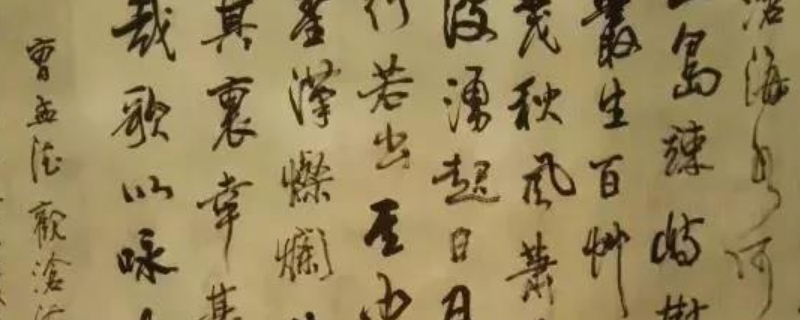 滄海水何
島竦峙樹
叢生百艸
茂秋風蕭
波湧起日月
行若出其中
星漢燦爛
其裏幸甚
哉歌以咏
曹孟德觀滄海